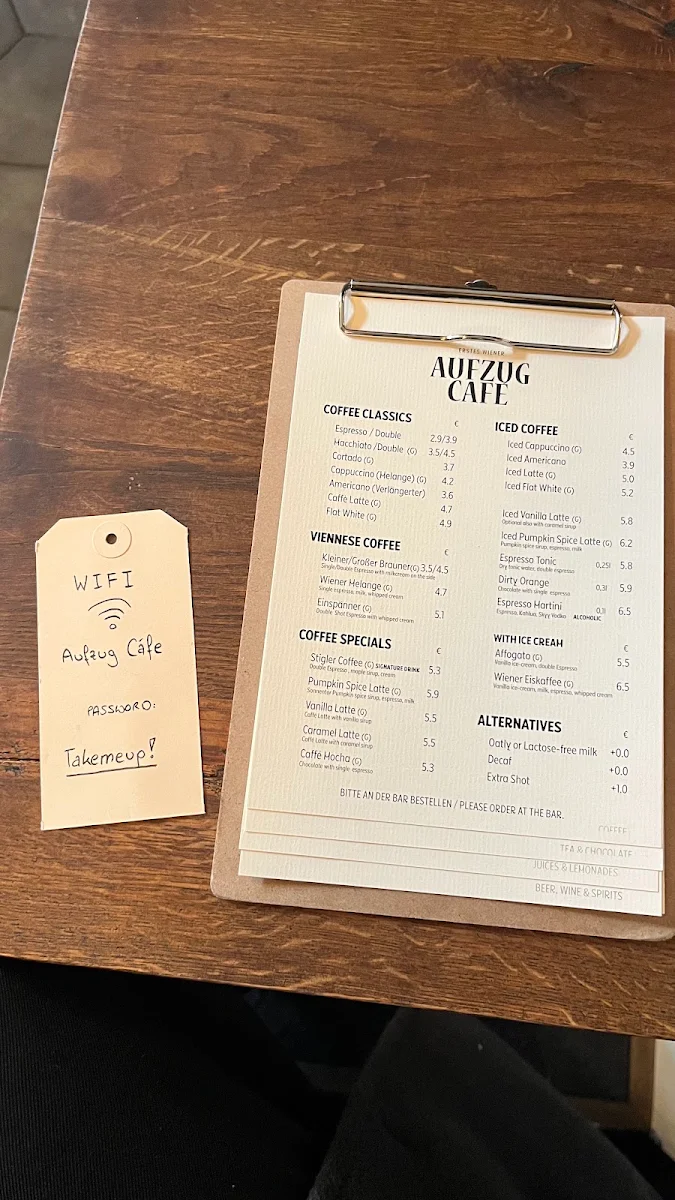 WIFI
Aufzug Cáfe
PASSWORD:
Takemeup!
ERSTES WIENER
AUFZUG
CAFE
COFFEE CLASSICS €
Espresso / Double 2.9/3.9
Macchiato /Double (G) 3.5/4.5
Cortado (G) 3.7
Cappuccino (Melange) (G) 4.2
Americano (Verlängerter) 3.6
Caffè Latte (G) 4.7
Flat White (G) 4.9
VIENNESE COFFEE €
Kleiner/Großer Brauner(G) 3.5/4.5
Single/Double Espresso with milkcream on the side
Wiener Melange (G) 4.7
Single espresso, milk, whipped cream
Einspänner (G) 5.1
Double Shot Espresso with whipped cream
COFFEE SPECIALS €
Stigler Coffee (G) SIGNATURE DRINK 5.3
Double Espresso , maple sirup, cream
Pumpkin Spice Latte (G) 5.9
Sonnentor Pumpkin spice sirup, espresso, milk
Vanilla Latte (G) 5.5
Caffè Latte with vanilla sirup
Caramel Latte (G) 5.5
Caffè Latte with caramel sirup
Caffè Mocha (G) 5.3
Chocolate with single espresso
ICED COFFEE €
Iced Cappuccino (G) 4.5
Iced Americano 3.9
Iced Latte (G) 5.0
Iced Flat White (G) 5.2
Iced Vanilla Latte (G) 5.8
Optional also with caramel sirup
Iced Pumpkin Spice Latte (G) 6.2
Pumpkin spice sirup, espresso, milk
Espresso Tonic 0,25l 5.8
Dry tonic water, double espresso
Dirty Orange 0,3l 5.9
Chocolate with single espresso
Espresso Martini 0,1l 6.5
Espresso, Kahlua, Skyy Vodka ALCOHOLIC
WITH ICE CREAM €
Affogato (G) 5.5
Vanilla ice-cream, double Espresso
Wiener Eiskaffee (G) 6.5
Vanilla ice-cream, milk, espresso, whipped cream
ALTERNATIVES €
Oatly or Lactose-free milk +0.0
Decaf +0.0
Extra Shot +1.0
BITTE AN DER BAR BESTELLEN / PLEASE ORDER AT THE BAR.
COFFEE
TEA & CHOCOLATE
JUICES & LEMONADES
BEER, WINE & SPIRITS